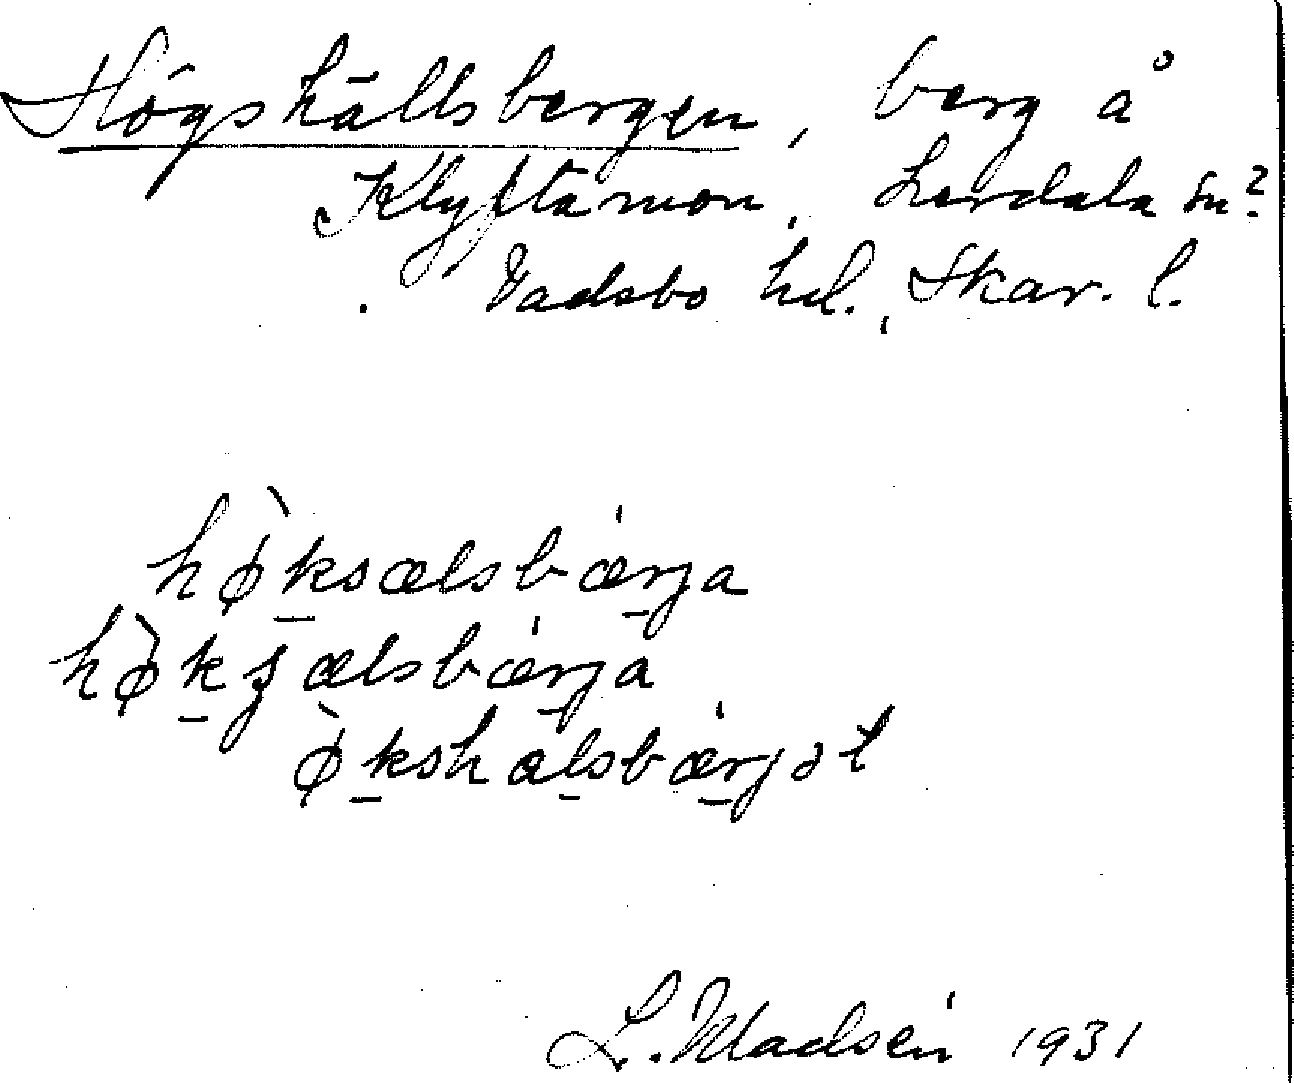 Högshällsbergen, berg å
Klyftamon, Lerdala sn?
Vadsbo hd., Skar. l.
hø̀ksælsbærja
hø̀kʂælsbærja
ø̀kshalsbærjət
L. Madsén 1931